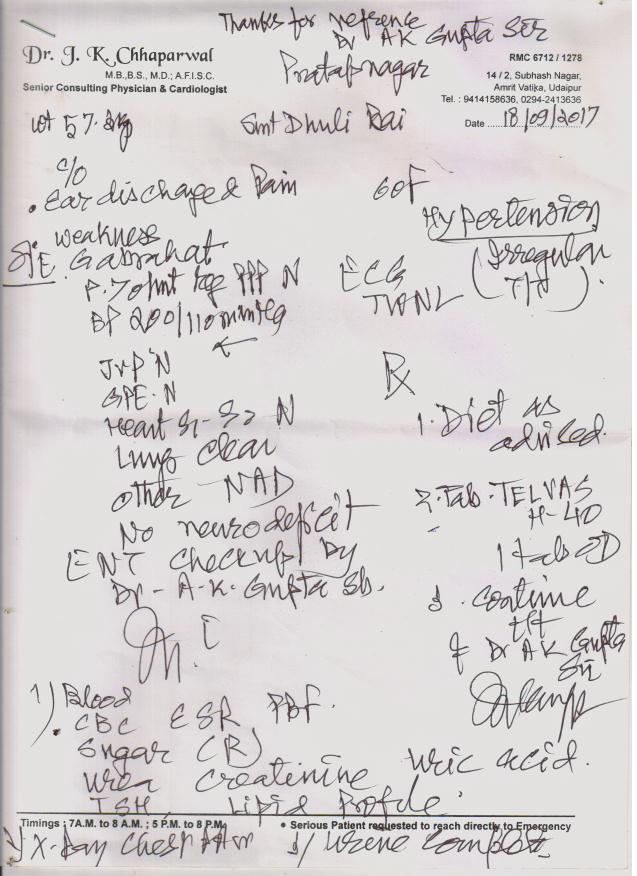 Thanks for reference
Dr A K Gupta Sir
Pratapnagar
Dr. J. K. Chhaparwal
M.B.,B.S., M.D.; A.F.I.S.C.
Senior Consulting Physician & Cardiologist
RMC 6712 / 1278
14 / 2, Subhash Nagar,
Amrit Vatika, Udaipur
Tel. : 9414158636, 0294-2413636
Date 18/09/2017
wt 57. kg
Smt Dhuli Bai
c/o
. Ear discharge & Pain
weakness
Gabrahat
O/E
P. 70/mt reg PPP N
BP 200/110 mmHg
←
JVP N
GPE. N
Heart S1-S2 N
Lung clear
Other NAD
No neurodeficit
ENT checkup by
Dr - A-K. Gupta Sb.
ECG
TWNL
Hypertension
(Irregular
T/t)
Rx
1. Diet as
advised.
2. Tab. TELVAS
H-40
1 tab OD
3. continue
t/t
of Dr A K Gupta
Sir
1) Blood
CBC ESR PBF.
Sugar (R)
Urea Creatinine Uric acid.
TSH Lipid Profile
Timings : 7A.M. to 8 A.M. ; 5 P.M. to 8 P.M.
• Serious Patient requested to reach directly to Emergency
X-Ray Chest